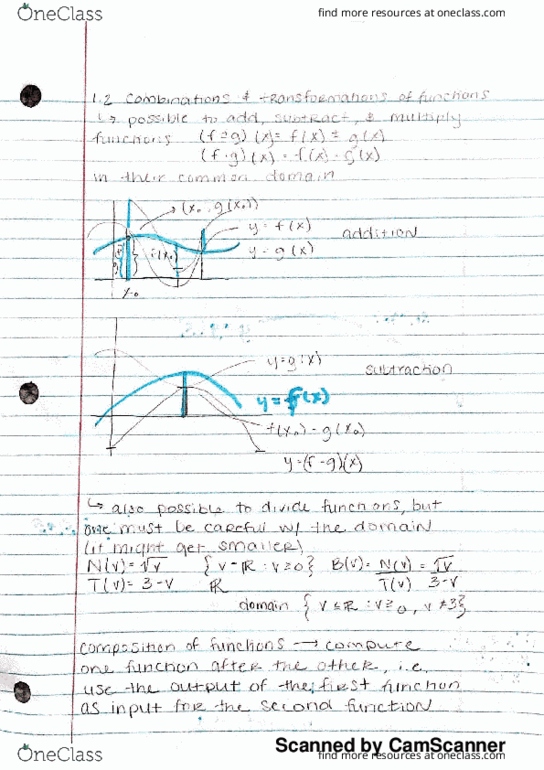 OneClass
find more resources at oneclass.com
1.2 Combinations & transformations of functions
↳ possible to add, subtract, & multiply
functions (f±g)(x) = f(x) ± g(x)
(f·g)(x) = f(x) · g(x)
in their common domain
(x₀, g(x₀))
y = f(x)
addition
y = g(x)
f(x₀)
x₀
y=g(x)
subtraction
y=f(x)
f(x₀) - g(x₀)
y=(f-g)(x)
↳ also possible to divide functions, but
one must be careful w/ the domain
(it might get smaller)
N(v)= √v { v - ℝ : v ≥ 0 } B(v) = N(v)/T(v) = √v/3-v
T(v) = 3-v ℝ
domain { v ∈ ℝ : v ≥ 0, v ≠ 3 }
composition of functions → compute
one function after the other, i.e.
use the output of the first function
as input for the second function
Scanned by CamScanner
OneClass
find more resources at oneclass.com